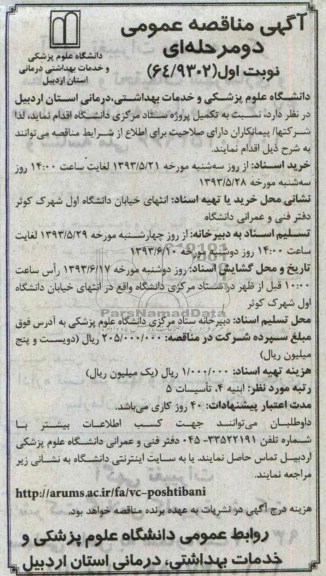 آگهی مناقصه عمومی
دومرحله‌ای
نوبت اول(۶۴/۹۳۰۲)
دانشگاه علوم پزشکی
و خدمات بهداشتی درمانی
استان اردبیل
دانشگاه علوم پزشکی و خدمات بهداشتی،درمانی استان اردبیل
در نظر دارد: نسبت به تکمیل پروژه ستاد مرکزی دانشگاه اقدام نماید، لذا
شرکتها/ پیمانکاران دارای صلاحیت برای اطلاع از شرایط مناقصه می‌توانند
به شرح ذیل اقدام نمایند.
خرید اسناد: از روز سه‌شنبه مورخه ۱۳۹۳/۵/۲۱ لغایت ساعت ۱۴:۰۰ روز
سه‌شنبه مورخه ۱۳۹۳/۵/۲۸
نشانی محل خرید یا تهیه اسناد: انتهای خیابان دانشگاه اول شهرک کوثر
دفتر فنی و عمرانی دانشگاه
تسلیم اسناد به دبیرخانه: از روز چهارشنبه مورخه ۱۳۹۳/۵/۲۹ لغایت
ساعت ۱۴:۰۰ روز دوشنبه مورخه ۱۳۹۳/۶/۱۰
تاریخ و محل گشایش اسناد: روز دوشنبه مورخه ۱۳۹۳/۶/۱۷ رأس ساعت
۱۰:۰۰ قبل از ظهر در ستاد مرکزی دانشگاه واقع در انتهای خیابان دانشگاه
اول شهرک کوثر
محل تسلیم اسناد: دبیرخانه ستاد مرکزی دانشگاه علوم پزشکی به آدرس فوق
مبلغ سپرده شرکت در مناقصه: ۲۰۵/۰۰۰/۰۰۰ ریال (دویست و پنج
میلیون ریال)
هزینه تهیه اسناد: ۱/۰۰۰/۰۰۰ ریال (یک میلیون ریال)
رتبه مورد نظر: ابنیه ۴، تأسیسات ۵
مدت اعتبار پیشنهادات: ۴۰ روز کاری می‌باشد.
داوطلبان می‌توانند جهت کسب اطلاعات بیشتر با
شماره تلفن ۳۳۵۲۲۱۹۱-۰۴۵ دفتر فنی و عمرانی دانشگاه علوم پزشکی
اردبیل تماس حاصل نمایند. یا به سایت اینترنتی دانشگاه به نشانی زیر
مراجعه نمایند.
http://arums.ac.ir/fa/vc-poshtibani
هزینه درج آگهی در نشریات به عهده برنده مناقصه خواهد بود.
روابط عمومی دانشگاه علوم پزشکی و
خدمات بهداشتی، درمانی استان اردبیل